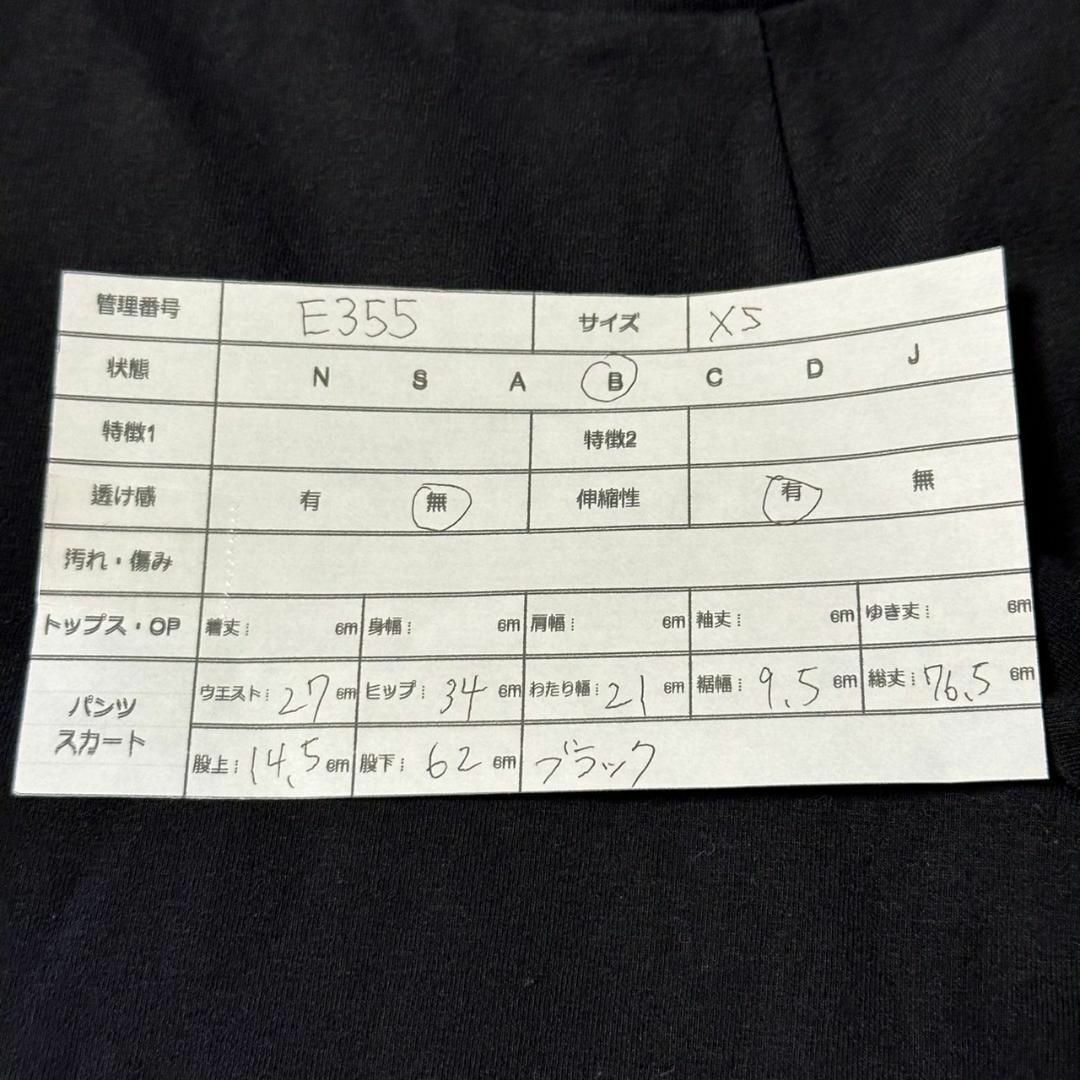 管理番号 E355 サイズ XS
状態 N S A B C D J
特徴1 特徴2
透け感 有 無 伸縮性 有 無
汚れ・傷み
トップス・OP 着丈: cm 身幅: cm 肩幅: cm 袖丈: cm ゆき丈: cm
パンツ スカート ウエスト: 27 cm ヒップ: 34 cm わたり幅: 21 cm 裾幅: 9.5 cm 総丈: 76.5 cm
股上: 14.5 cm 股下: 62 cm ブラック